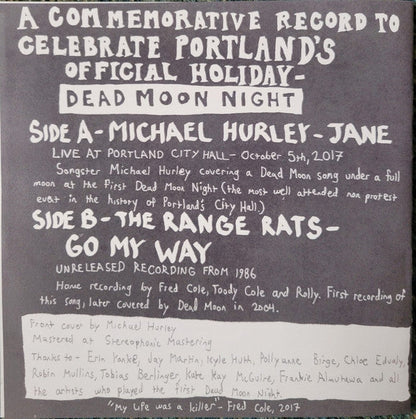 A COMMEMORATIVE RECORD TO
CELEBRATE PORTLAND'S
OFFICIAL HOLIDAY-
DEAD MOON NIGHT
SIDE A- MICHAEL HURLEY- JANE
LIVE AT PORTLAND CITY HALL- October 5th, 2017
Songster Michael Hurley covering a Dead Moon song under a full
moon at the first Dead Moon Night (the most well attended non protest
event in the history of Portland's City Hall.)
SIDE B- THE RANGE RATS-
GO MY WAY
UNRELEASED RECORDING FROM 1986
Home recording by Fred Cole, Toody Cole and Rolly. First recording of
this song, later covered by Dead Moon in 2004.
Front cover by Michael Hurley
Mastered at Stereophonic Mastering
Thanks to- Erin Yanke, Jay Martin, Kyle Huth, Pollyanne Birge, Chloe Eudaly,
Robin Mullins, Tobias Berlinger, Kate Kay McGuire, Frankie and all
the artists who played the first Dead Moon Night.
"My life was a killer"- Fred Cole, 2017